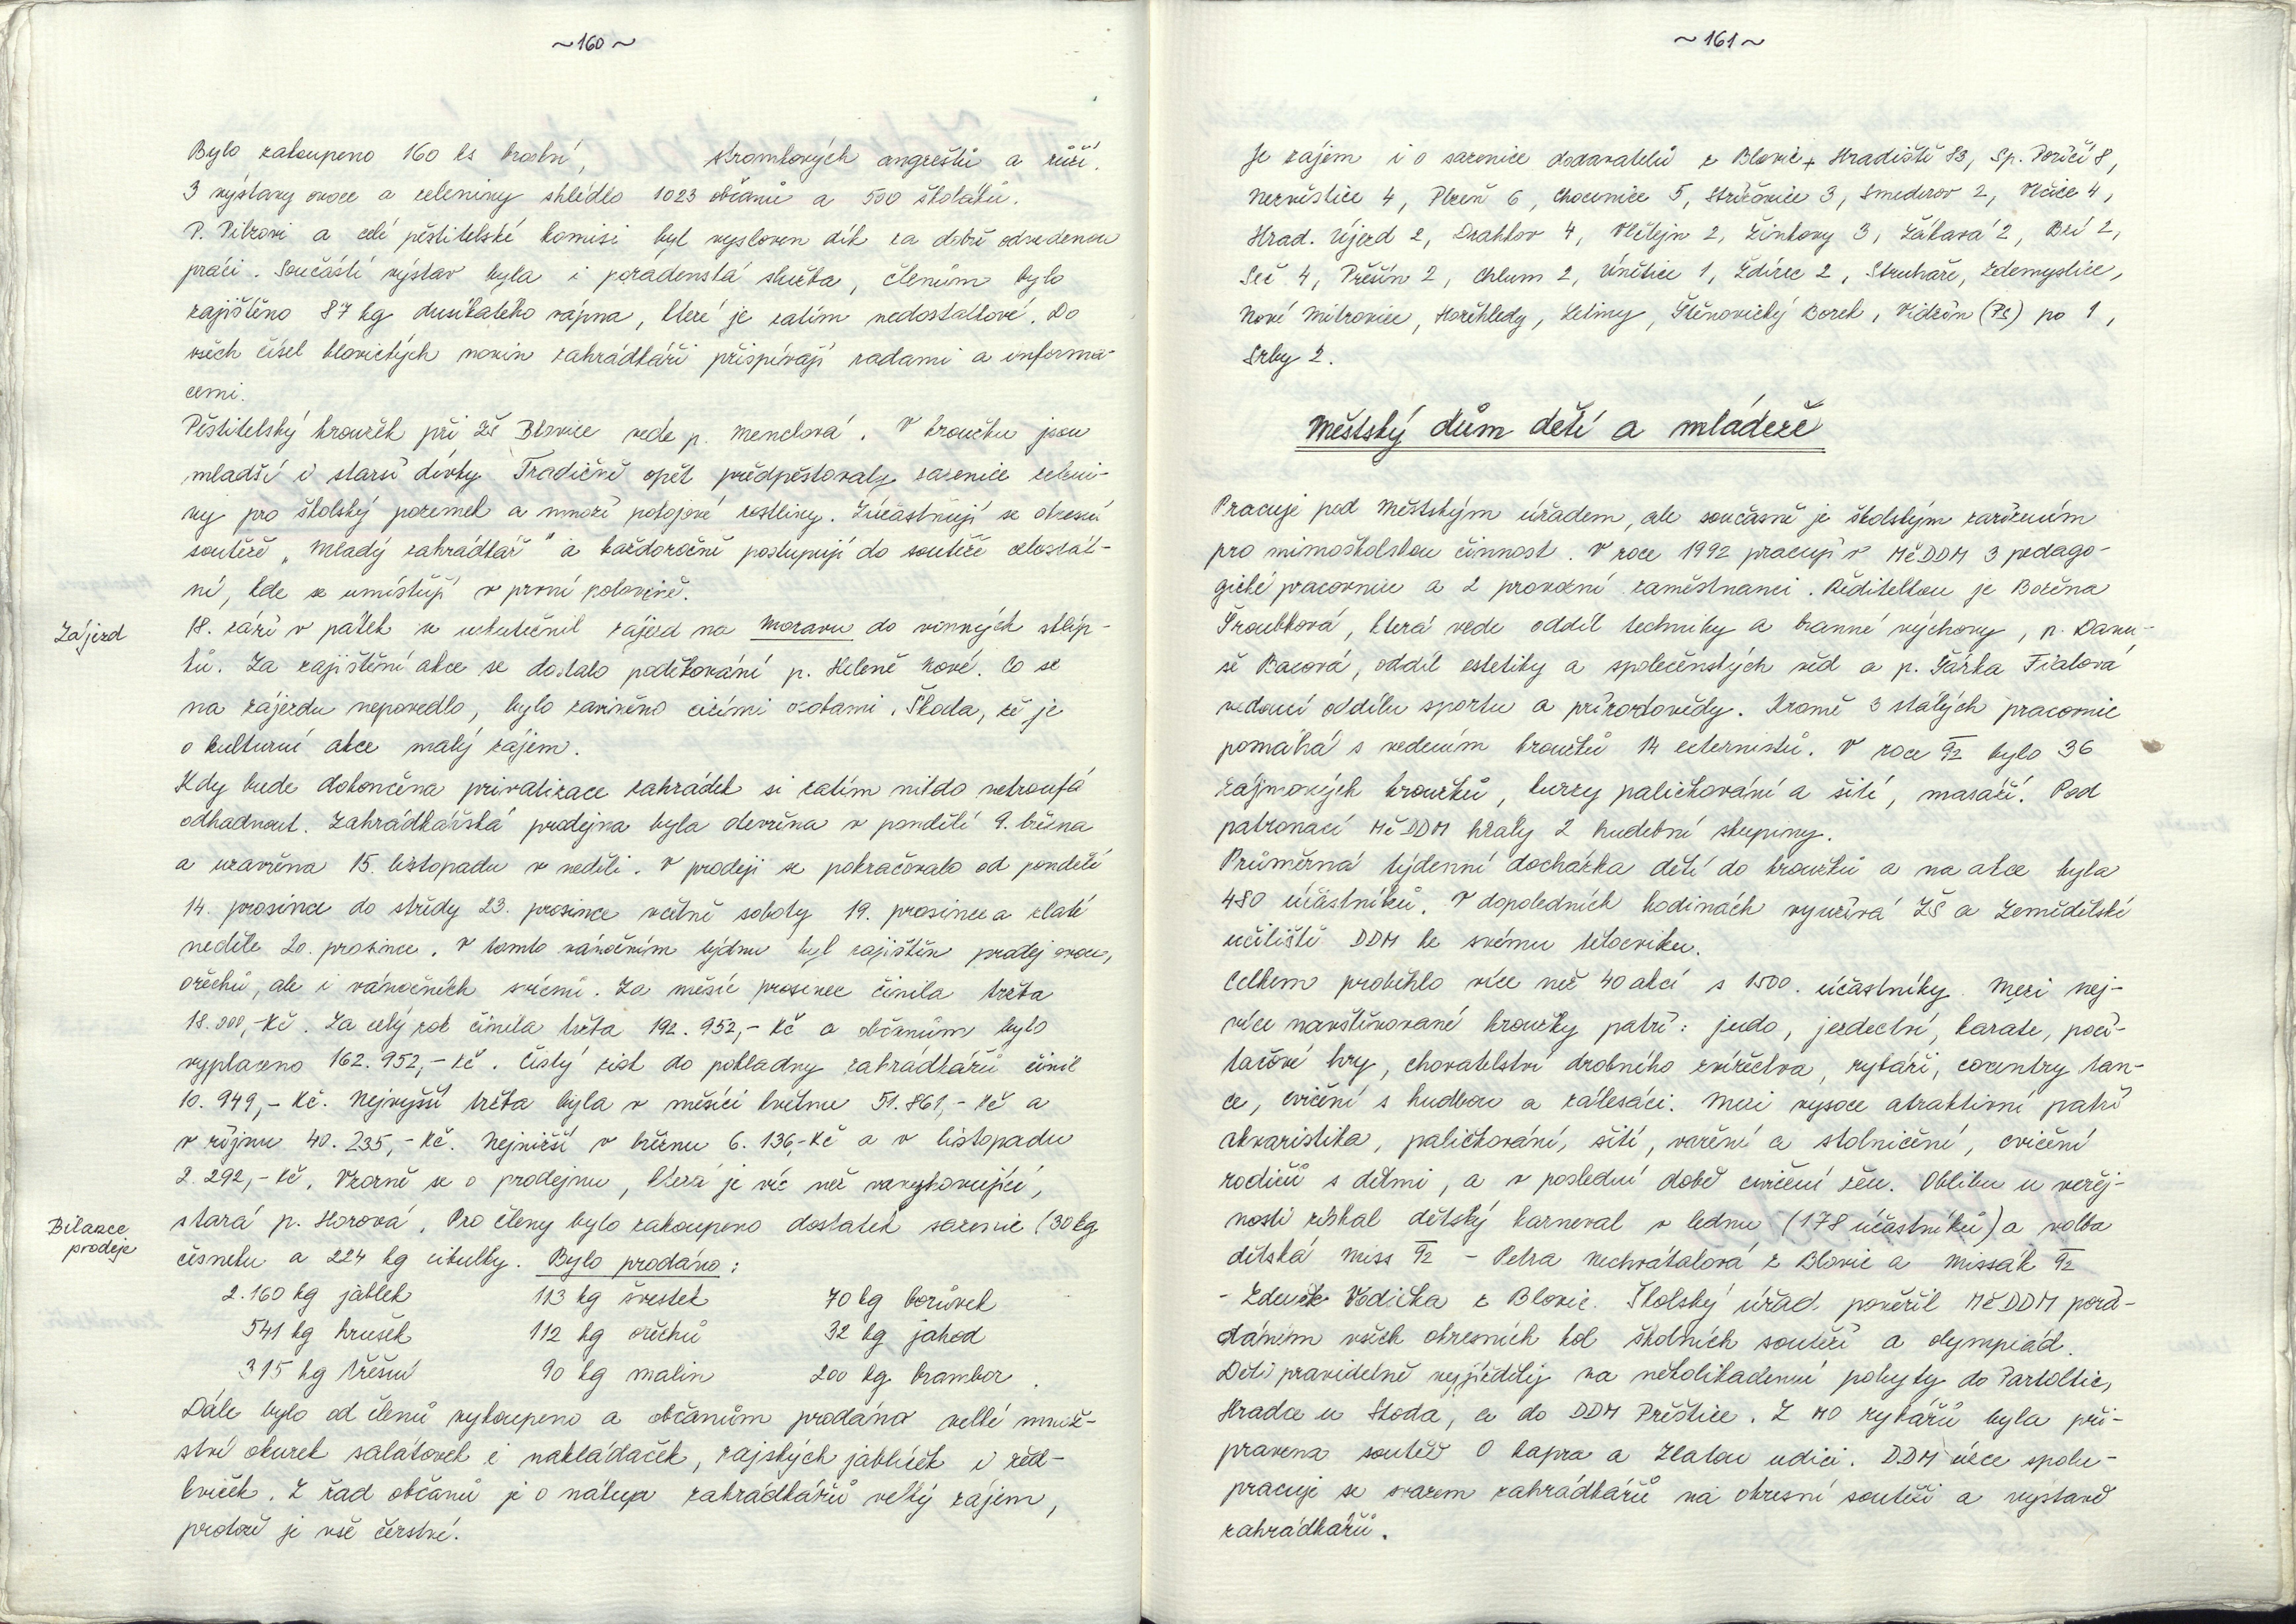 ~160~
Bylo zakoupeno 160 ks brslní, stromkových angreštů a růží.
3 výstavy ovoce a zeleniny shlédlo 1023 občanů a 500 školáků.
P. Pibrovi a celé pěstitelské komisi byl vysloven dík za dobře odvedenou
práci. Součástí výstav byla i poradenská služba, členům bylo
zajištěno 87 kg dusíkatého vápna, které je zatím nedostatkové. Do
všech čísel blovických novin zahrádkáři přispívají radami a informa-
cemi.
Pěstitelský kroužek při ZŠ Blovice vede p. Menclová. V kroužku jsou
mladší i starší dívky. Tradičně opět předpěstovaly sazenice zeleni-
ny pro školský pozemek a množí pokojové rostliny. Zúčastňují se okresní
soutěže „Mladý zahrádkář" a každoročně postupují do soutěže celostát-
ní, kde se umístují v první polovině.
Zájezd
18. září v pátek se uskutečnil zájezd na Moravu do vinných sklíp-
ků. Za zajištění akce se dostalo poděkování p. Heleně Nové. Co se
na zájezdu nepovedlo, bylo zaviněno cizími osobami. Škoda, že je
o kulturní akce malý zájem.
Kdy bude dokončena privatizace zahrádek si zatím nikdo netroufá
odhadnout. Zahrádkářská prodejna byla otevřena v pondělí 9. března
a uzavřena 15. listopadu v neděli. V prodeji se pokračovalo od pondělí
14. prosince do středy 23. prosince včetně soboty 19. prosince a zlaté
neděle 20. prosince. V tomto vánočním týdnu byl zajištěn prodej ovoce,
ořechů, ale i vánočních svícnů. Za měsíc prosinec činila tržba
18.200,-Kč. Za celý rok činila tržba 192.952,- Kč a občanům bylo
vyplaceno 162.952,- Kč. Čistý zisk do pokladny zahrádkářů činil
10.949,- Kč. Nejvyšší tržba byla v měsíci květnu 51.861,- Kč a
v říjnu 40.235,- Kč. Nejnižší v březnu 6.136,-Kč a v listopadu
2.292,- Kč. Vzorně se o prodejnu, která je víc než vyhovující,
Bilance
prodeje
stará p. Horová. Pro členy bylo zakoupeno dostatek sazenic (30kg
česneku a 224 kg cibulky. Bylo prodáno:
2.160 kg jablek 113 kg švestek 70 kg borůvek
541 kg hrušek 112 kg ořechů 32 kg jahod
315 kg třešní 90 kg malin 200 kg brambor.
Dále bylo od členů vykoupeno a občanům prodáno velké množ-
ství okurek salátovek i nakládaček, rajských jablíček i řed-
kviček. Z řad občanů je o nákup zahrádkářů velký zájem,
protože je vše čerstvé.
~161~
Je zájem i o sazenice dodavatelů z Blovic + Hradiště 83, Sp. Poříčí 8,
Nezvěstice 4, Plzeň 6, Chocenice 5, Střížovice 3, Smederov 2, Vlčice 4,
Hrad. Újezd 2, Drahkov 4, Vlčtejn 2, Žinkovy 3, Žákava 2, Bzí 2,
Seč 4, Přešín 2, Chlum 2, Únětice 1, Ždírec 2, Struhaře, Zdemyslice,
Nové Mitrovice, Hořehledy, Letiny, Štěnovický Borek, Vidžín (PS) po 1,
Srby 2.
Městský dům dětí a mládeže
Pracuje pod Městským úřadem, ale současně je školským zařízením
pro mimoškolskou činnost. V roce 1992 pracují v MěDDM 3 pedago-
gické pracovnice a 2 provozní zaměstnanci. Ředitelkou je Božena
Šroubková, která vede oddíl techniky a branné výchovy, p. Danu-
še Bacová, oddíl estetiky a společenských věd a p. Šárka Fialová
vedoucí oddílu sportu a přírodovědy. Kromě 3 stálých pracovnic
pomáhá s vedením kroužků 14 externistů. V roce 92 bylo 36
zájmových kroužků, kurzy paličkování a šití, masáží. Pod
patronací MěDDM hrály 2 hudební skupiny.
Průměrná týdenní docházka dětí do kroužků a na akce byla
480 účastníků. V dopoledních hodinách využívá ZŠ a Zemědělské
učiliště DDM ke svému tělocviku.
Celkem proběhlo více než 40 akcí s 1500. účastníky. Mezi nej-
více navštěvované kroužky patří: judo, jezdectví, karate, počí-
tačové hry, chovatelství drobného zvířectva, rybáři, coventry tan-
ce, cvičení s hudbou a zálesáci. Mezi vysoce atraktivní patří
akvaristika, paličkování, šití, vaření a stolničení, cvičení
rodičů s dětmi, a v poslední době cvičení žen. Oblibu u veřej-
nosti získal dětský karneval v lednu (178 účastníků) a volba
dětská Miss 92 - Petra Nechvátalová z Blovic a Missák 92
- Zdeněk Vodička z Blovic. Školský úřad pověřil MěDDM pořá-
dáním všech okresních kol školních soutěží a olympiád.
Děti pravidelně vyjížděly na několikadenní pobyty do Partoltic,
Hradce u Stoda, a do DDM Přeštice. Z MO rybářů byla při-
pravena soutěž O kapra a Zlatou udici. DDM úzce spolu-
pracuje se svazem zahrádkářů na okresní soutěži a výstavě
zahrádkářů.